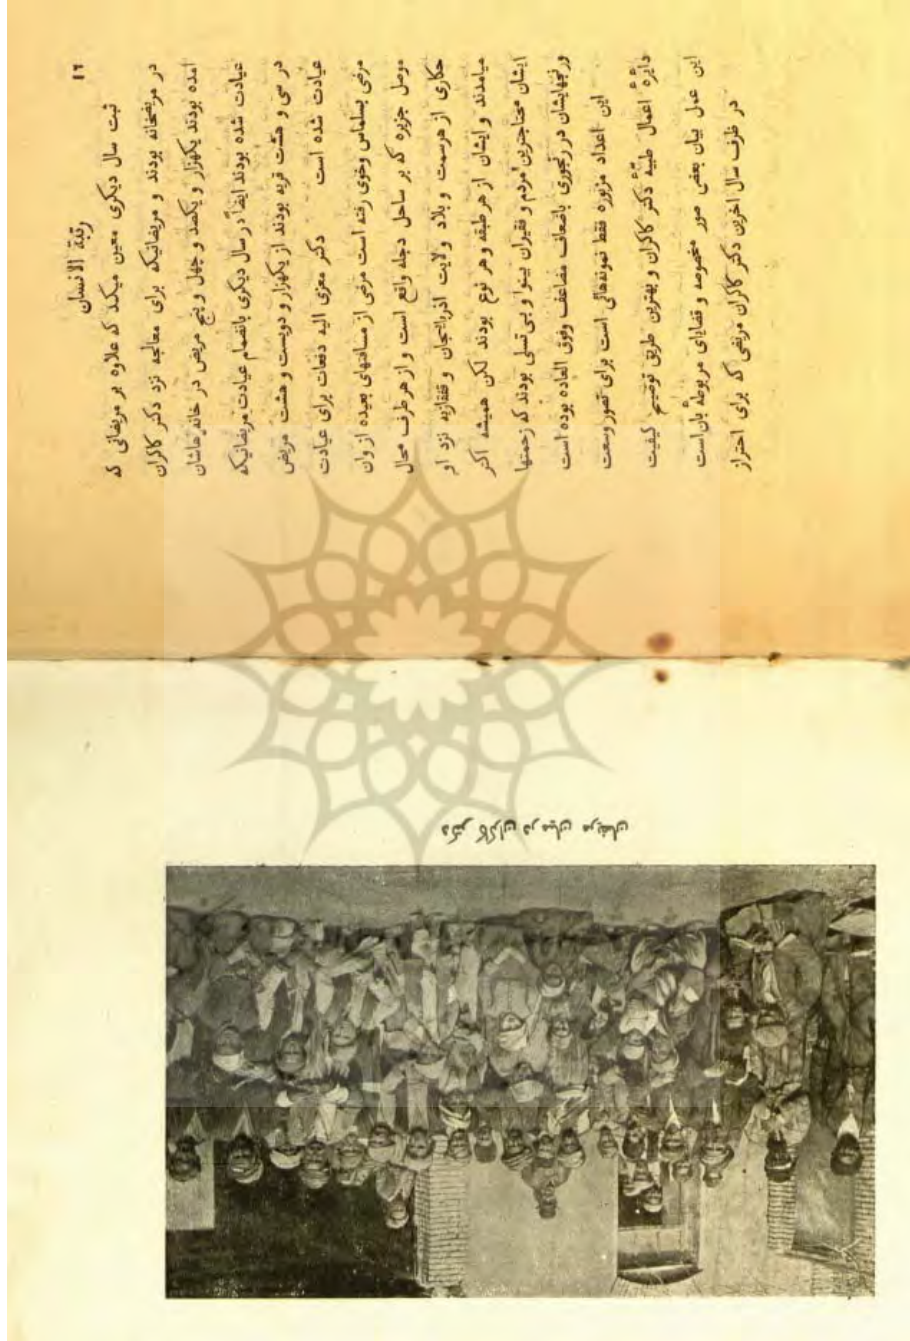 ۱۶
رقبة الانسان
ثبت سال دیگری معین میکند که علاوه بر مریضانی که
در مریضخانه بودند و مریضانیکه برای معالجه نزد دکتر کاکران
آمده بودند یکهزار و یکصد و چهل و پنج مریض در خانه هاشان
عیادت شده بودند ایضاً در سال دیگری بانضمام عیادت مریضانیکه
در سی و هشت قریه بودند از یکهزار و دویست و هشت مریض
عیادت شده است دکتر معزی الیه دفعات برای عیادت
مرضی بسلماس وخوی رفته است مرضی از مسافتهای بعیده از وان
موصل جزیره که بر ساحل دجله واقع است و از هر طرف محال
حکاری از هر سمت و بلاد ولایت اذربایجان و قفقازیه نزد او
میامدند و ایشان از هر طبقه و هر نوع بودند لکن همیشه اکثر
ایشان محتاجترین مردم و فقیران بینوا و بی تسلی بودند که زحمتها
ورنجهایشان در رنجوری باضعاف مضاعف وفوق العاده بوده است
این اعداد مزبوره فقط نمونه‌هائی است برای تصور وسعت
دائرهٔ اعمال طبیّهٔ دکتر کاکران و بهترین طریق توضیح کیفیت
این عمل بیان بعضی صور مخصوصه و قضایای مربوطهٔ بان است
در ظرف سال اخرین دکتر کاکران مریضی که برای احتراز
دکتر کاکران در میان مریضان